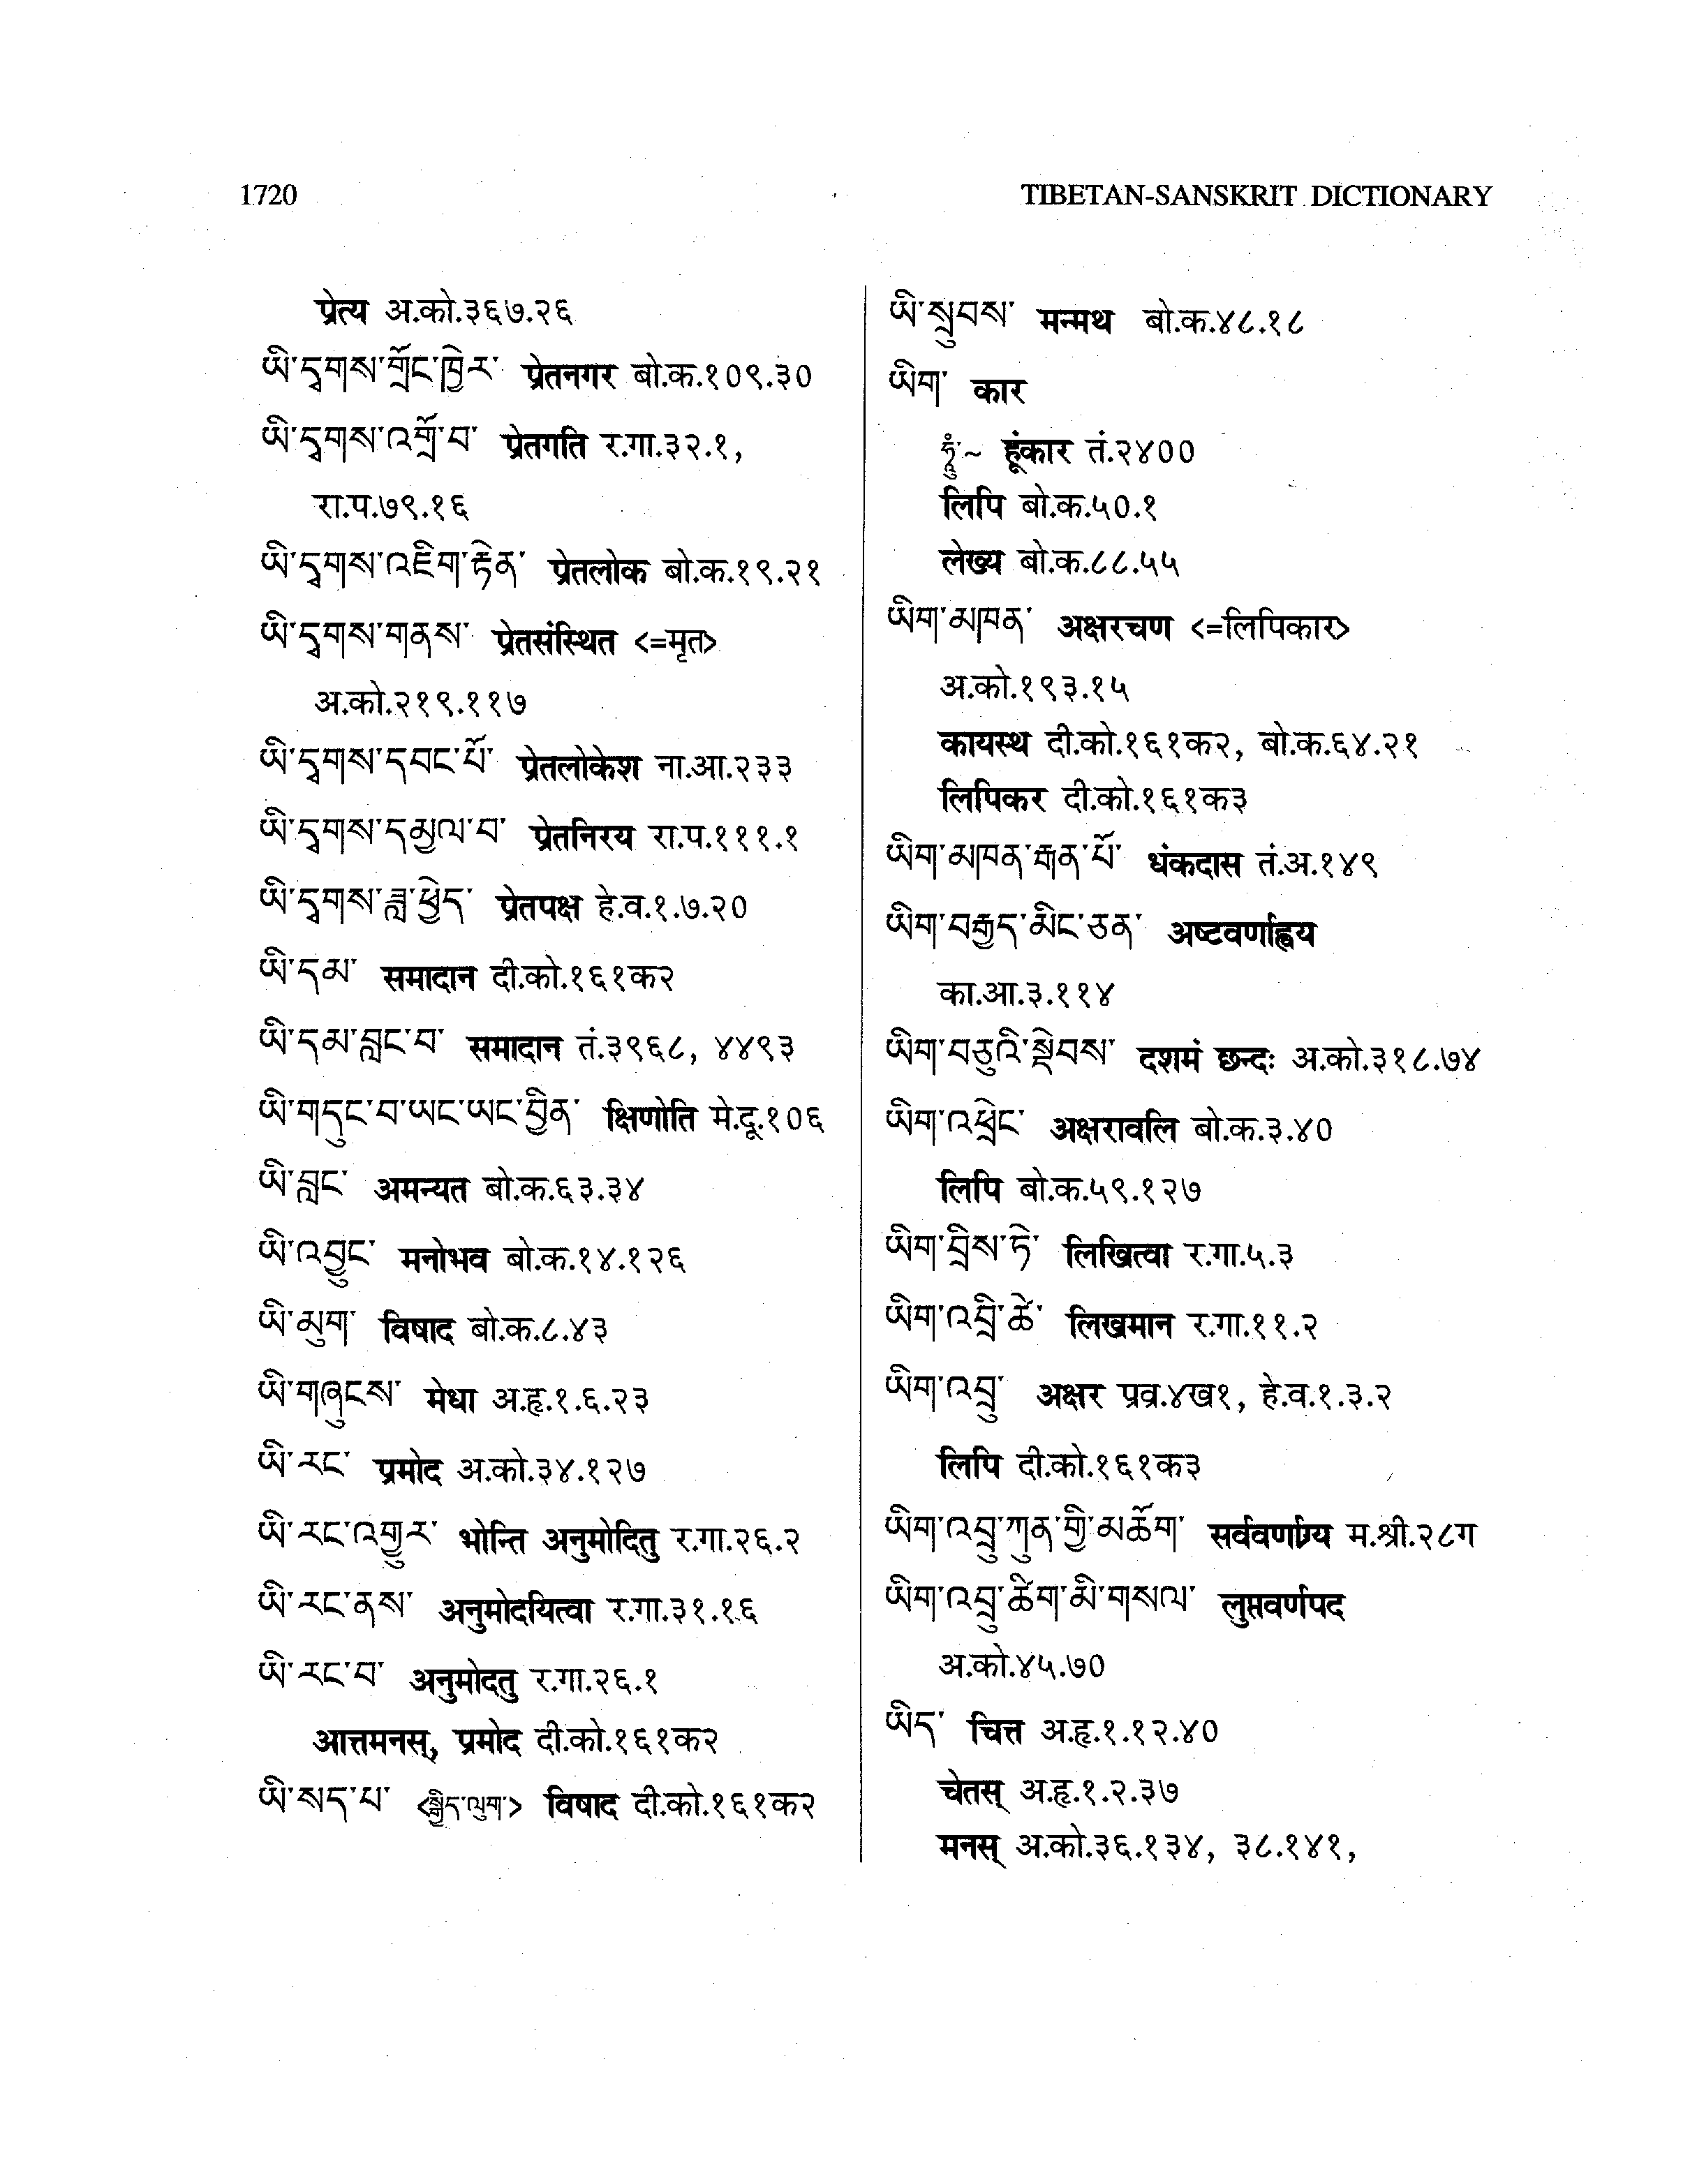 1720
TIBETAN-SANSKRIT DICTIONARY
प्रेत्य अ.को.३६७.२६
ཡི་དྭགས་གྲོང་ཁྱེར་ प्रेतनगर बो.क.१०९.३०
ཡི་དྭགས་འགྲོ་བ་ प्रेतगति र.गा.३२.१,
रा.प.७९.१६
ཡི་དྭགས་འཇིག་རྟེན་ प्रेतलोक बो.क.१९.२१
ཡི་དྭགས་གནས་ प्रेतसंस्थित <=मृत>
अ.को.२१९.११७
ཡི་དྭགས་དབང་པོ་ प्रेतलोकेश ना.आ.२३३
ཡི་དྭགས་དམྱལ་བ་ प्रेतनिरय रा.प.१११.१
ཡི་དྭགས་ཟླ་ཕྱེད་ प्रेतपक्ष हे.व.१.७.२०
ཡི་དམ་ समादान दी.को.१६१क२
ཡི་དམ་བླང་བ་ समादान तं.३९६८, ४४९३
ཡི་གདུང་བ་ཡང་ཡང་བྱིན་ क्षिणोति मे.दू.१०६
ཡི་བླང་ अमन्यत बो.क.६३.३४
ཡི་འབྱུང་ मनोभव बो.क.१४.१२६
ཡི་མུག་ विषाद बो.क.८.४३
ཡི་གཞུངས་ मेधा अ.हृ.१.६.२३
ཡི་རང་ प्रमोद अ.को.३४.१२७
ཡི་རང་འགྱུར་ भोन्ति अनुमोदितु र.गा.२६.२
ཡི་རང་ནས་ अनुमोदयित्वा र.गा.३१.१६
ཡི་རང་བ་ अनुमोदतु र.गा.२६.१
आत्तमनस्, प्रमोद दी.को.१६१क२
ཡི་སད་པ་ <སྒྱིད་ལུག་> विषाद दी.को.१६१क२
ཡི་སྲུབས་ मन्मथ बो.क.४८.१८
ཡིག་ कार
ཧཱུྃ་~ हूंकार तं.२४००
लिपि बो.क.५०.१
लेख्य बो.क.८८.५५
ཡིག་མཁན་ अक्षरचण <=लिपिकार>
अ.को.१९३.१५
कायस्थ दी.को.१६१क२, बो.क.६४.२१
लिपिकर दी.को.१६१क३
ཡིག་མཁན་རྒན་པོ་ धंकदास तं.अ.१४९
ཡིག་བརྒྱད་མིང་ཅན་ अष्टवर्णाह्वय
का.आ.३.११४
ཡིག་བཅུའི་སྡེབས་ दशमं छन्दः अ.को.३१८.७४
ཡིག་འཕྲེང་ अक्षरावलि बो.क.३.४०
लिपि बो.क.५९.१२७
ཡིག་བྲིས་ཏེ་ लिखित्वा र.गा.५.३
ཡིག་འབྲི་ཚེ་ लिखमान र.गा.११.२
ཡིག་འབྲུ་ अक्षर प्रव्र.४ख१, हे.व.१.३.२
लिपि दी.को.१६१क३
ཡིག་འབྲུ་ཀུན་གྱི་མཆོག་ सर्ववर्णाग्र्य म.श्री.२८ग
ཡིག་འབྲུ་ཚིག་མི་གསལ་ लुप्तवर्णपद
अ.को.४५.७०
ཡིད་ चित्त अ.हृ.१.१२.४०
चेतस् अ.हृ.१.२.३७
मनस् अ.को.३६.१३४, ३८.१४१,